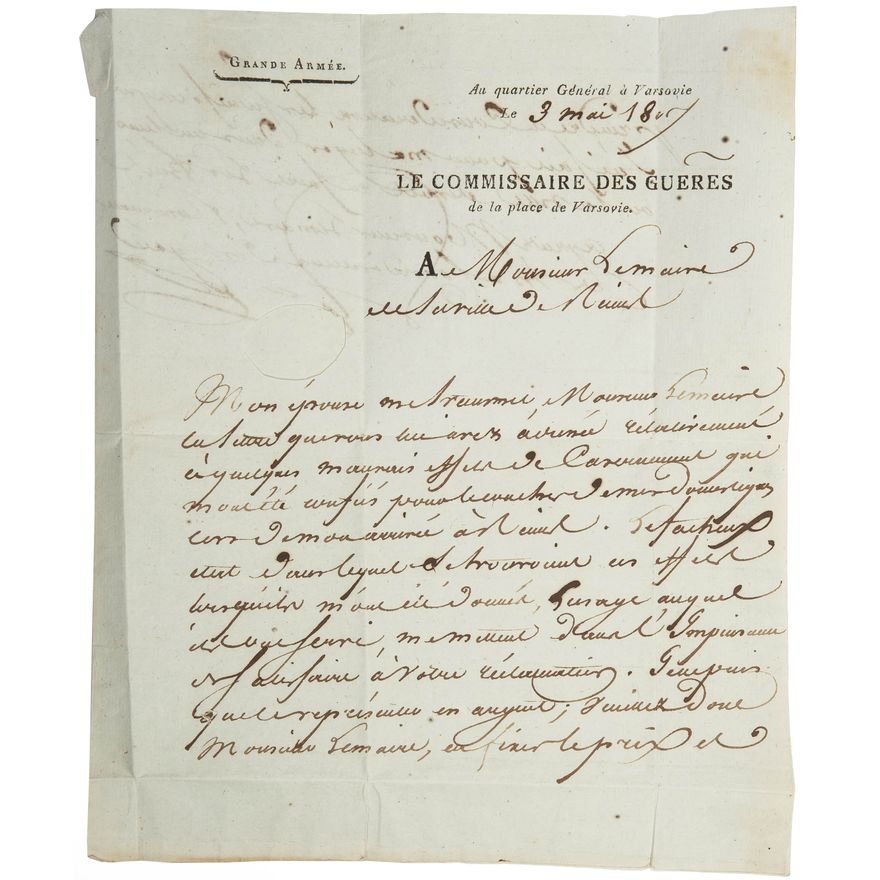 GRANDE ARMÉE.
Au quartier Général à Varsovie
Le 3 mai 1807
LE COMMISSAIRE DES GUERES
de la place de Varsovie.
A Monsieur Lemaire
de la ville de
Mon épouse me transmet Monsieur Lemaire
la lettre que vous lui avez adressée relativement
à quelques mauvais effets de Casernement qui
m'ont été confiés pour le coucher de mes Domestiques
lors de mon arrivée à . Le facheux
état dans lequel se trouvoient ces effets
lorsqu'ils m'ont été donnés, l'usage auquel
ils ont servi, me mettent dans l'Impuissance
de satisfaire à votre réclamation. Je ne puis
que le représenter en argent; veuillez donc
Monsieur Lemaire, en fixer le prix et